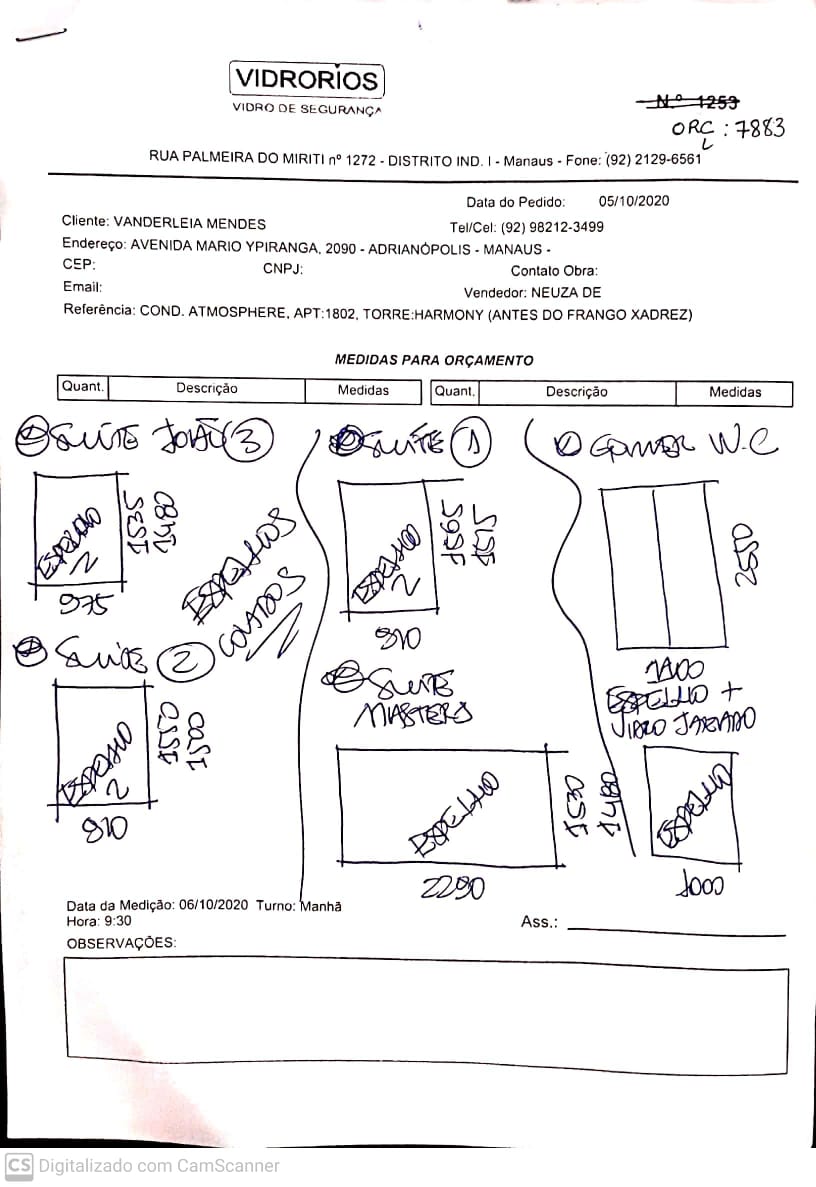 VIDRORIOS
VIDRO DE SEGURANÇA
Nº 1253
ORC : 7883
RUA PALMEIRA DO MIRITI nº 1272 - DISTRITO IND. I - Manaus - Fone: (92) 2129-6561
Data do Pedido: 05/10/2020
Cliente: VANDERLEIA MENDES
Tel/Cel: (92) 98212-3499
Endereço: AVENIDA MARIO YPIRANGA, 2090 - ADRIANÓPOLIS - MANAUS -
CEP: CNPJ: Contato Obra:
Email: Vendedor: NEUZA DE
Referência: COND. ATMOSPHERE, APT:1802, TORRE:HARMONY (ANTES DO FRANGO XADREZ)
MEDIDAS PARA ORÇAMENTO
Quant. Descrição Medidas Quant. Descrição Medidas
SUÍTE JOÃO 3
ESPELHO 2
1535
1480
975
ESPELHOS
COLADOS
SUÍTE 2
ESPELHO 2
1550
1500
810
SUÍTE 1
ESPELHO 2
1565
1515
810
SUÍTE
MASTERS
ESPELHO
1530
1480
2290
W.C
2550
1400
ESPELHO +
VIDRO
ESPELHO
1000
Data da Medição: 06/10/2020 Turno: Manhã
Hora: 9:30
Ass.:
OBSERVAÇÕES:
CS Digitalizado com CamScanner